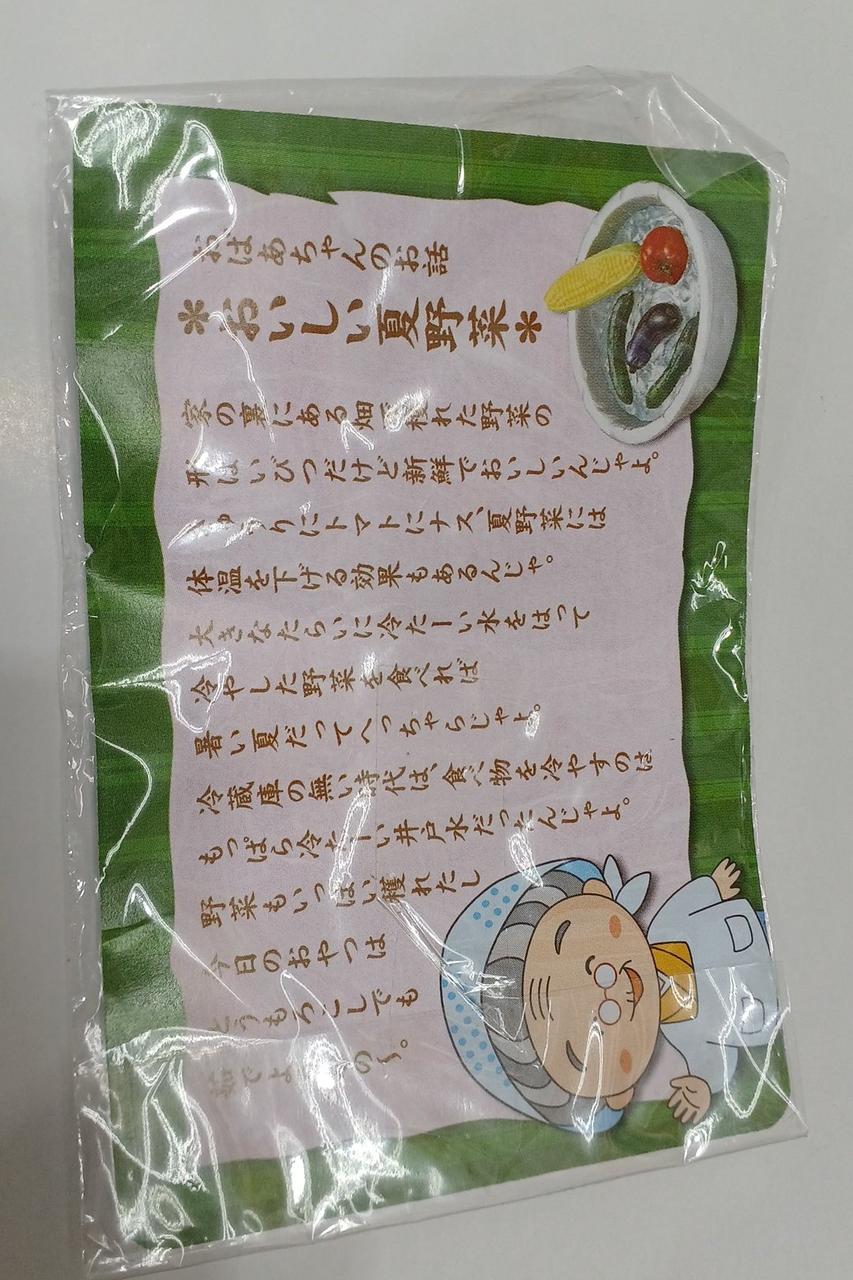 おばあちゃんのお話
*おいしい夏野菜*
家の裏にある畑で穫れた野菜の
形はいびつだけど新鮮でおいしいんじゃよ。
きゅうりにトマトにナス、夏野菜には
体温を下げる効果もあるんじゃ。
大きなたらいに冷たーい水をはって
冷やした野菜を食べれば
暑い夏だってへっちゃらじゃよ。
冷蔵庫の無い時代は、食べ物を冷やすのは
もっぱら冷たーい井戸水だったんじゃよ。
野菜もいっぱい穫れたし
今日のおやつは
とうもろこしでも
茹でようかの〜。